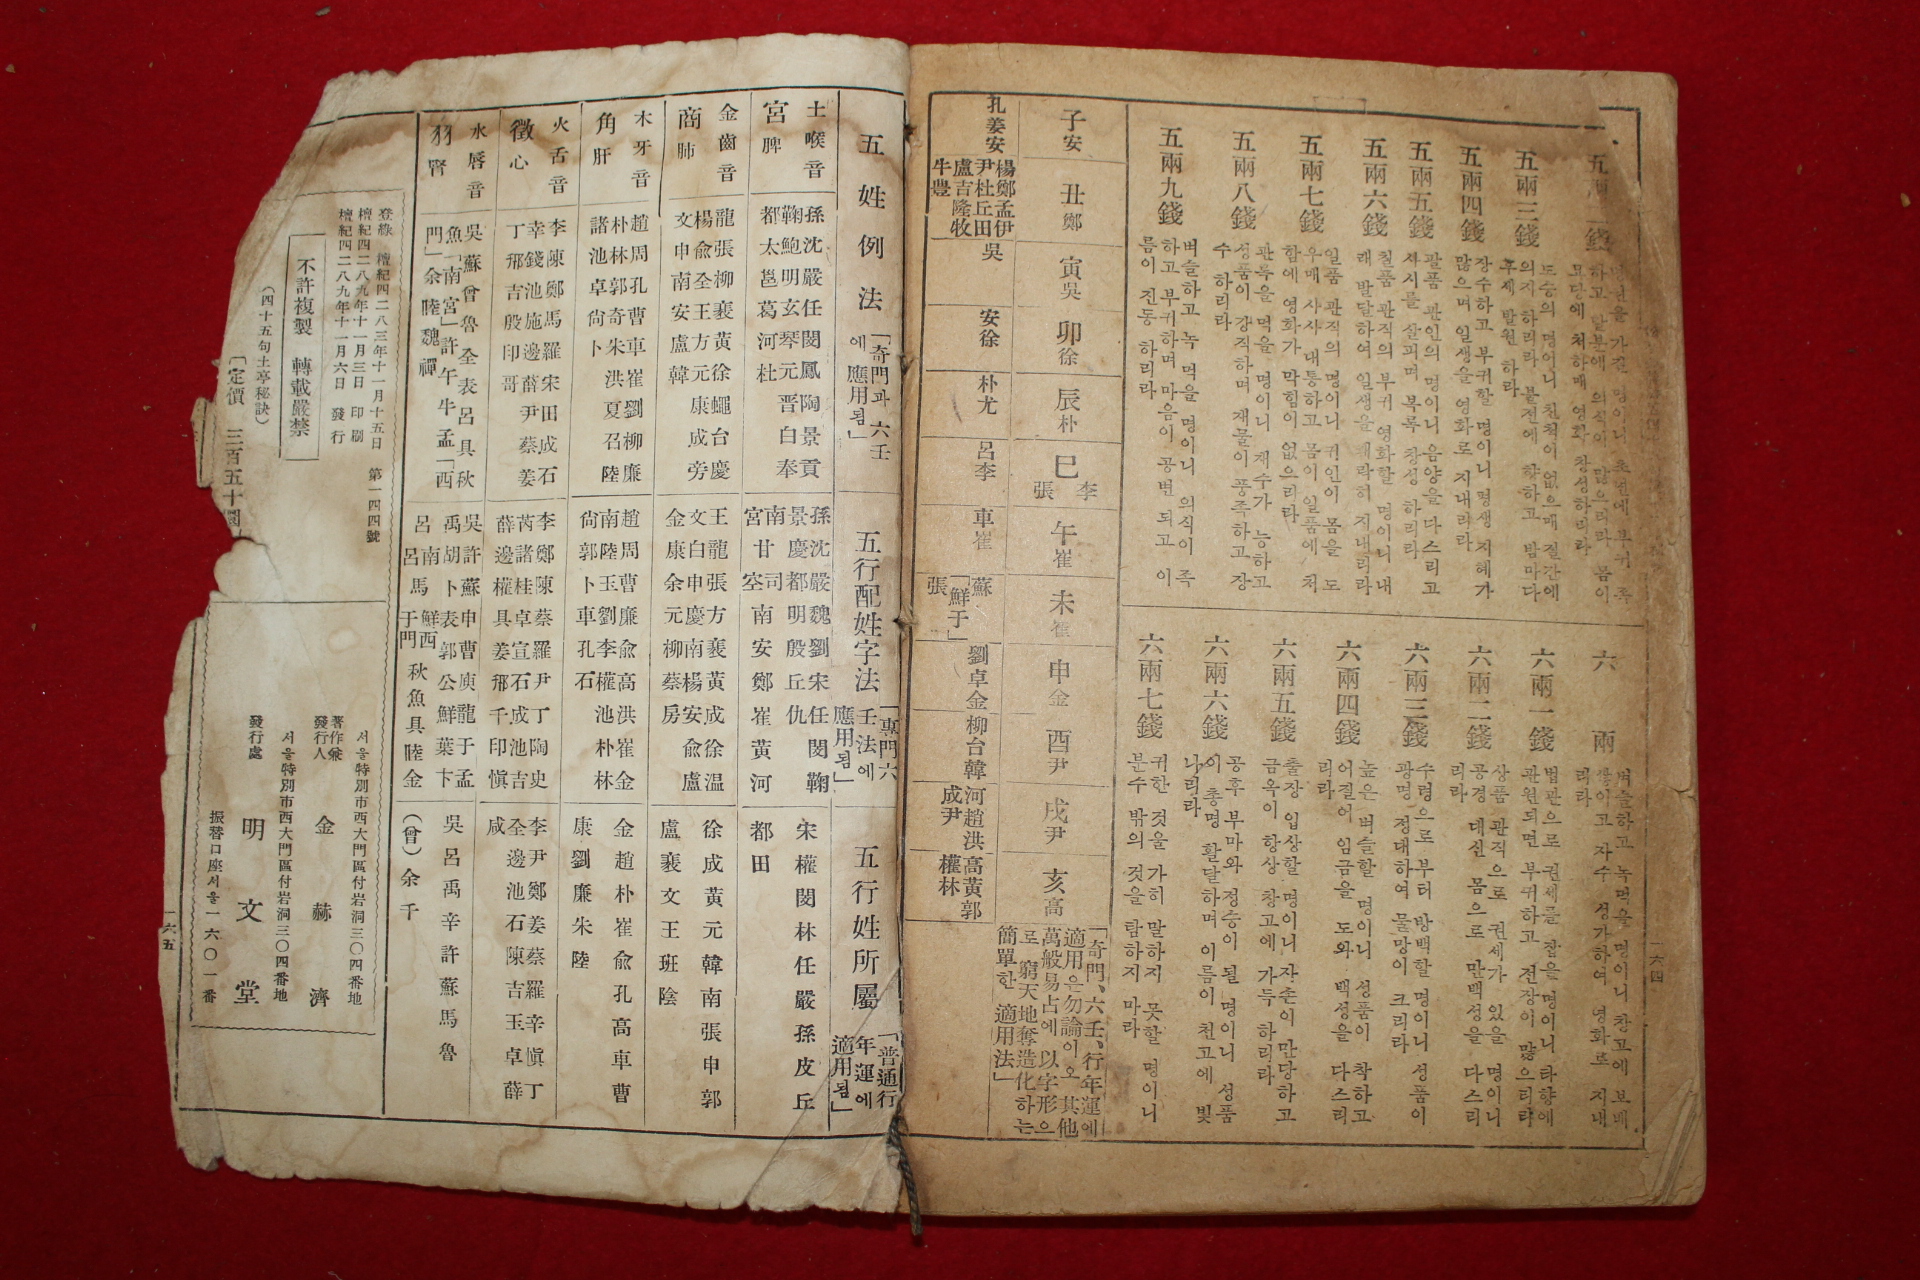 五兩三錢
도승의 명이니 친척이 없으매 절간에
의지하리라 불전에 향하고 밤마다
후세 발원 하라
五兩四錢
장수하고 부귀할 명이니 명생 지혜가
많으며 일생을 영화로 지내리라
五兩五錢
팔품 관인의 명이니 음양을 다스리고
사시를 살피며 복록 장성 하리라
五兩六錢
칠품 관직의 부귀 영화할 명이니 내
래 발달하여 일생을 쾌락히 지내리라
五兩七錢
일품 관직의 명이니 귀인이 몸을 도
우매 사사 대통하고 몸이 일품에 처
함에 영화가 막힘이 없으리라
五兩八錢
관록을 먹을 명이니 재수가 능하고
성품이 강직하며 재물이 풍족하고 장
수 하리라
五兩九錢
벼슬하고 녹 먹을 명이니 의식이 족
하고 부귀하며 마음이 공변 되고 이
름이 진동 하리라
六兩
벼슬하고 녹먹을 명이니 창고에 보배
많이고 자수 성가하여 영화로 지내
리라
六兩一錢
법관으로 권세를 잡을 명이니 타향에
관원되면 부귀하고 전장이 많으리라
六兩二錢
상품 관직으로 권세가 있을 명이니
공경 대신 몸으로 만백성을 다스리
리라
六兩三錢
수령으로부터 방백할 명이니 성품이
광명 정대하여 물망이 크리라
六兩四錢
높은 벼슬할 명이니 성품이 착하고
어질어 임금을 도와 백성을 다스리
리라
六兩五錢
출장 입상할 명이니 자손이 만당하고
금옥이 항상 창고에 가득 하리라
六兩六錢
공후 부마와 정승이 될 명이니 성품
이 총명 활달하며 이름이 천고에 빛
나리라
六兩七錢
귀한 것을 가히 말하지 못할 명이니
분수 밖의 것을 탐하지 마라
子安
丑鄭
寅吳
卯徐
辰朴
巳李張
午崔
未崔
申金
酉尹
戌尹
亥高
孔姜安
楊鄭孟伊
尹杜丘田
盧吉隆牧
牛豊
吳
安徐
朴尤
呂李
車崔
蘇
「鮮于」
張
劉卓金
柳台韓
河趙洪
成尹
高黄郭
權林
「奇門、六壬、行年運에
適用은勿論이오 其他
萬般易占에 以字形으
로 窮天地奪造化하는
簡單한 適用法」
一六四
五姓例法
「奇門과 六壬
에 應用됨」
五行配姓字法
「專門六
壬法에
應用됨」
五行姓所屬
「普通行
年運에
適用됨」
土喉音
宮脾
孫沈嚴任閔鳳陶景貢
鞠鮑明玄琴元晋白奉
都太邕葛河杜
孫沈嚴魏劉宋任閔鞠
景慶都明殷丘仇
南司南安鄭崔黄河
宮甘空
宋權閔林任嚴孫皮丘
都田
金齒音
商肺
龍張柳裵黄徐蠅台慶
楊兪全王方元康成旁
文申南安盧韓
王龍張方裵黄成徐温
文白申慶南楊安兪盧
金康余元柳蔡房
徐成黄元韓南張申郭
盧裵文王班陰
木牙音
角肝
趙周孔曹車崔劉柳廉
朴林郭奇朱洪夏召陸
諸池卓尙卜
趙周曹廉兪高洪崔金
南陸玉劉李權池朴林
尙郭卜車孔石
金趙朴崔兪孔高車曹
康劉廉朱陸
火舌音
徵心
李陳鄭馬羅宋田成石
幸錢池施邊薛尹蔡姜
丁邢吉殷印哥
李鄭陳蔡羅尹丁陶史
芮諸桂卓宣石成池吉
薛邊權具姜邢千印愼
李尹鄭姜蔡羅辛愼丁
全邊池石陳吉玉卓薛
咸
水唇音
羽腎
吳蘇曾魯全表呂具秋
魚「南宮」許午牛孟「西
門」余睦魏禪
吳許蘇申曹庾龍于孟
禹胡卜表郭公鮮葉卞
呂南馬鮮于西門秋魚具睦金
吳呂禹辛許蘇馬魯
(曾)余千
登錄 檀紀四二八三年十一月十五日 第一四四號
檀紀四二八九年十一月三日 印刷
檀紀四二八九年十一月六日 發行
不許複製 轉載嚴禁
(四十五句土亭秘訣)
「定價 三百五十圜」
서울特別市西大門區付岩洞三〇四番地
著作兼
發行人 金赫濟
서울特別市西大門區付岩洞三〇四番地
發行處 明文堂
振替口座서울一六〇一番
一六五